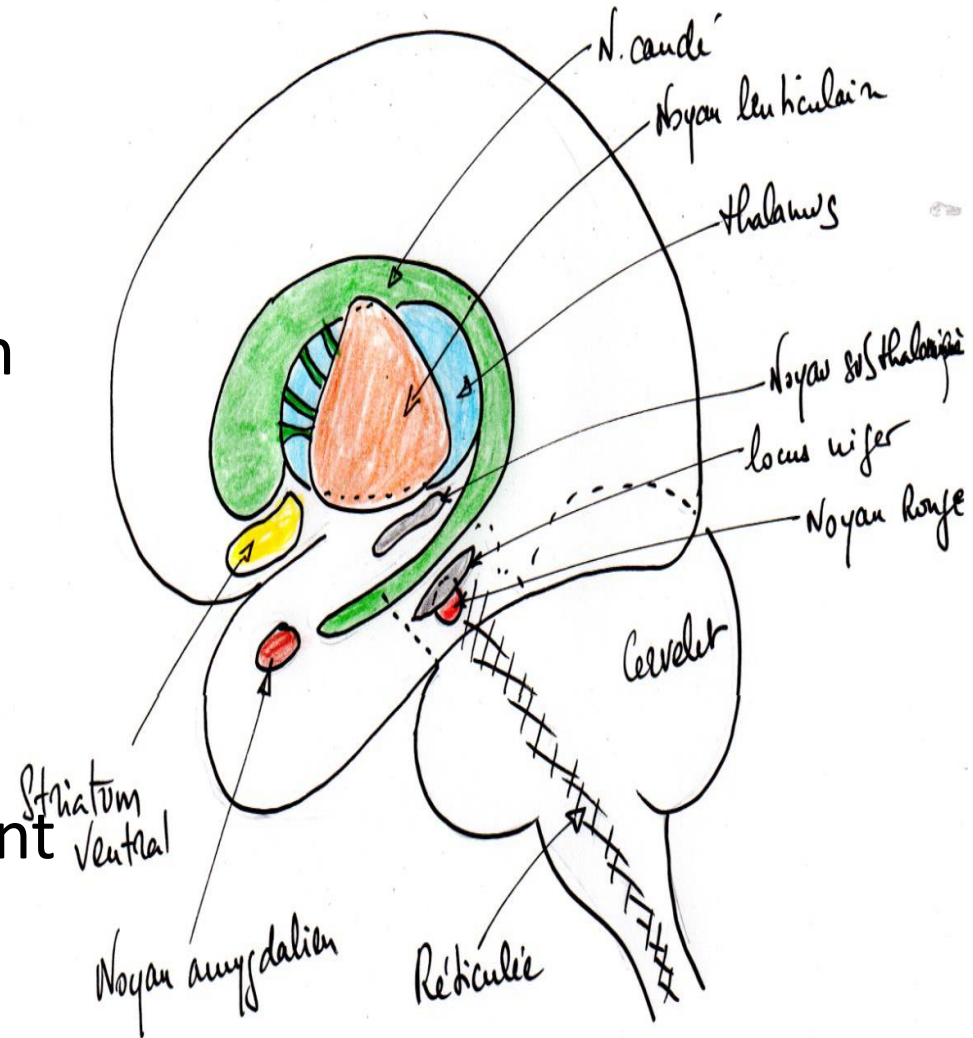 N. caudé
Noyau lenticulaire
thalamus
n
Noyau subthalamique
locus niger
Noyau Rouge
Cervelet
Striatum
ventral
nt
Noyau amygdalien
Réticulée